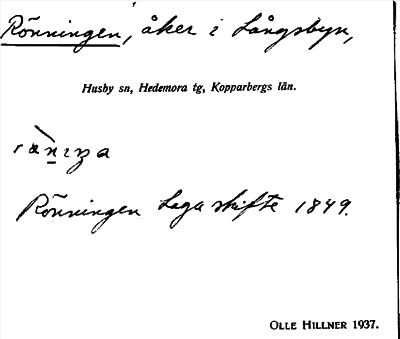 Rönningen, åker i Långsbyn,
Husby sn, Hedemora tg, Kopparbergs län.
Rönningen Laga skifte 1849.
OLLE HILLNER 1937.